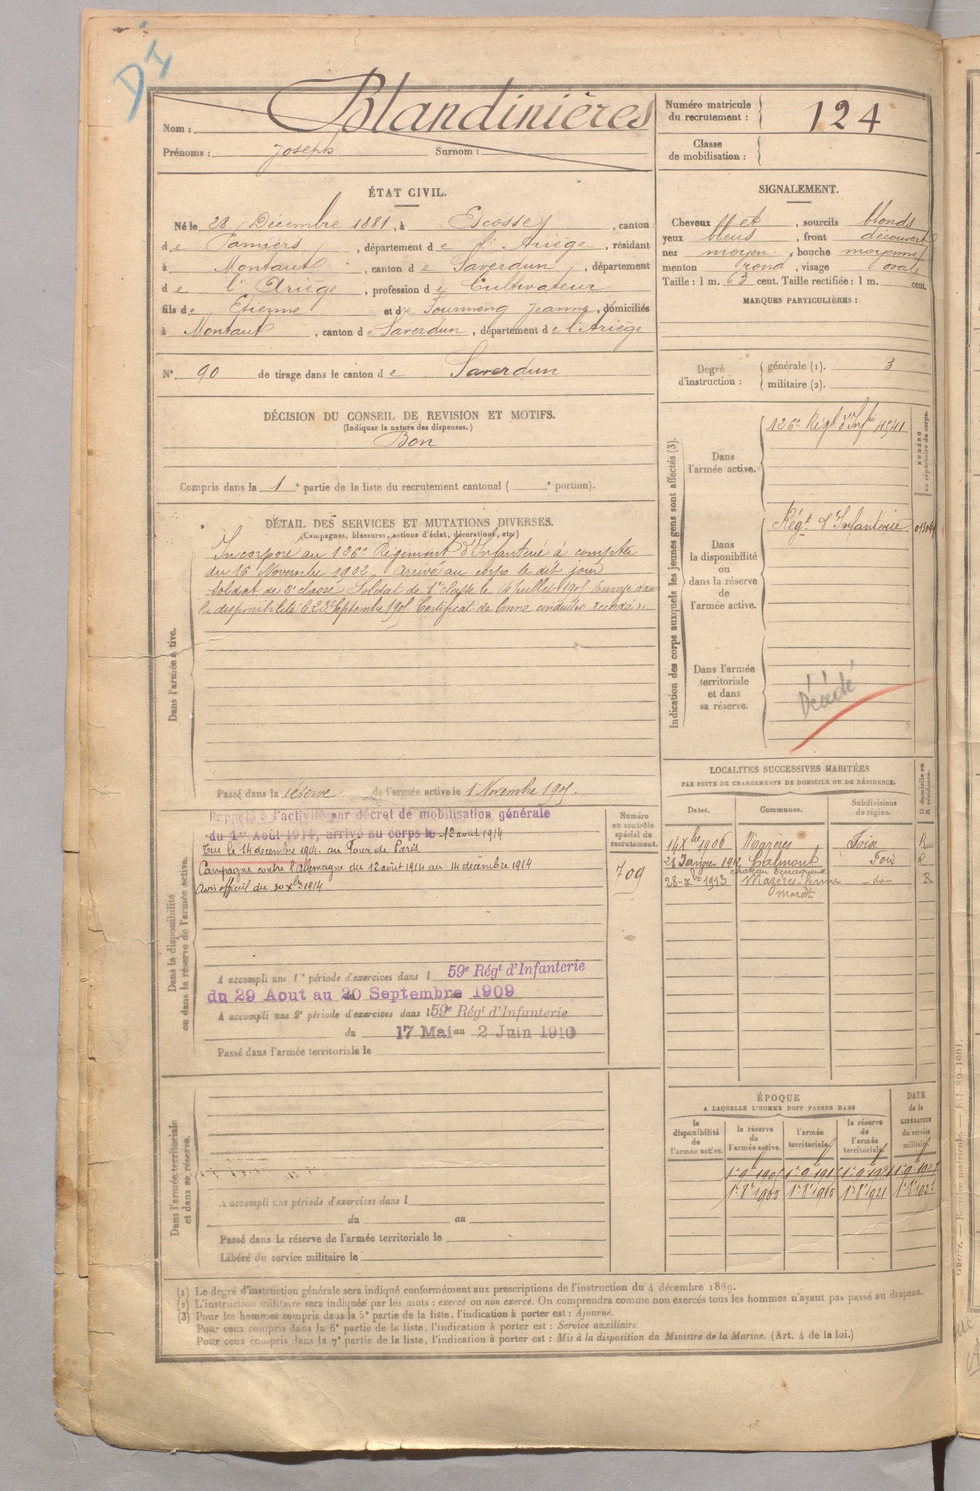 DI
Nom : Blandinières
Prénoms : Joseph Surnom :
Numéro matricule du recrutement : 124
Classe de mobilisation :
ÉTAT CIVIL.
Né le 28 Décembre 1881, à Escosse, canton
de Pamiers, département de l'Ariège, résidant
à Montaut, canton de Saverdun, département
de l'Ariège, profession de Cultivateur
fils de Etienne et de Jeanne, domiciliés
à Montaut, canton de Saverdun, département de l'Ariège
N° 90 de tirage dans le canton de Saverdun
SIGNALEMENT.
Cheveux et, sourcils blonds
yeux bleus, front découvert
nez moyen, bouche moyenne
menton rond, visage ovale
Taille : 1 m. 63 cent. Taille rectifiée : 1 m. cent.
MARQUES PARTICULIÈRES :
Degré d'instruction : générale (1). 3
militaire (2).
DÉCISION DU CONSEIL DE REVISION ET MOTIFS.
(Indiquer la nature des dispenses.)
Bon
Compris dans la 1e partie de la liste du recrutement cantonal ( e portion).
DÉTAIL DES SERVICES ET MUTATIONS DIVERSES.
(Campagnes, blessures, actions d'éclat, décorations, etc.)
Dans l'armée active.
Incorporé au 126e Régiment d'Infanterie à compter
du 16 Novembre 1902, arrivé au corps le dit jour
soldat de 2e classe. Soldat de 1e classe le 14 Juillet 1905 Envoyé dans
la disponibilité le 23 Septembre 1905 Certificat de bonne conduite
Passé dans la réserve de l'armée active le 1 Novembre 1905.
Indication des corps auxquels les jeunes gens sont affectés (3).
NUMÉRO au répertoire du corps.
Dans l'armée active.
126e Régt d'Infie 4541
Dans la disponibilité ou dans la réserve de l'armée active.
Régt d'Infanterie
Dans l'armée territoriale et dans sa réserve.
Décédé
Dans la disponibilité ou dans la réserve de l'armée active.
Rappelé à l'activité par décret de mobilisation générale
du 1er Août 1914, arrivé au corps le 12 août 1914
Tué le 14 décembre 1914 au Four de Paris
Campagne contre l'Allemagne du 12 août 1914 au 14 décembre 1914
Avis officiel du 20 Xbre 1914
Numéro au contrôle spécial du recrutement.
709
A accompli une 1e période d'exercices dans l 59e Régt d'Infanterie
du 29 Aout au 20 Septembre 1909
A accompli une 2e période d'exercices dans l 59e Régt d'Infanterie
du 17 Mai au 2 Juin 1910
Passé dans l'armée territoriale le
LOCALITES SUCCESSIVES HABITÉES
PAR SUITE DE CHANGEMENTS DE DOMICILE OU DE RÉSIDENCE.
Dates. Communes. Subdivisions de région. D domicile ou R résidence.
14 Xbre 1906 Mazères Foix R
21 Janvier 1912 Calmont Foix R
28 - 1913 Mazères do R
ÉPOQUE
A LAQUELLE L'HOMME DOIT PASSER DANS
la disponibilité de l'armée active. la réserve de l'armée active. l'armée territoriale. la réserve de l'armée territoriale.
DATE de la LIBÉRATION du service militaire.
Dans l'armée territoriale et dans sa réserve.
A accompli une période d'exercices dans l
du au
Passé dans la réserve de l'armée territoriale le
Libéré du service militaire le
(1) Le degré d'instruction générale sera indiqué conformément aux prescriptions de l'instruction du 4 décembre 1889.
(2) L'instruction militaire sera indiquée par les mots : exercé ou non exercé. On comprendra comme non exercés tous les hommes n'ayant pas passé au drapeau.
(3) Pour les hommes compris dans la 5e partie de la liste, l'indication à porter est : Ajourné.
Pour ceux compris dans la 6e partie de la liste, l'indication à porter est : Service auxiliaire.
Pour ceux compris dans la 7e partie de la liste, l'indication à porter est : Mis à la disposition du Ministre de la Marine. (Art. 4 de la loi.)